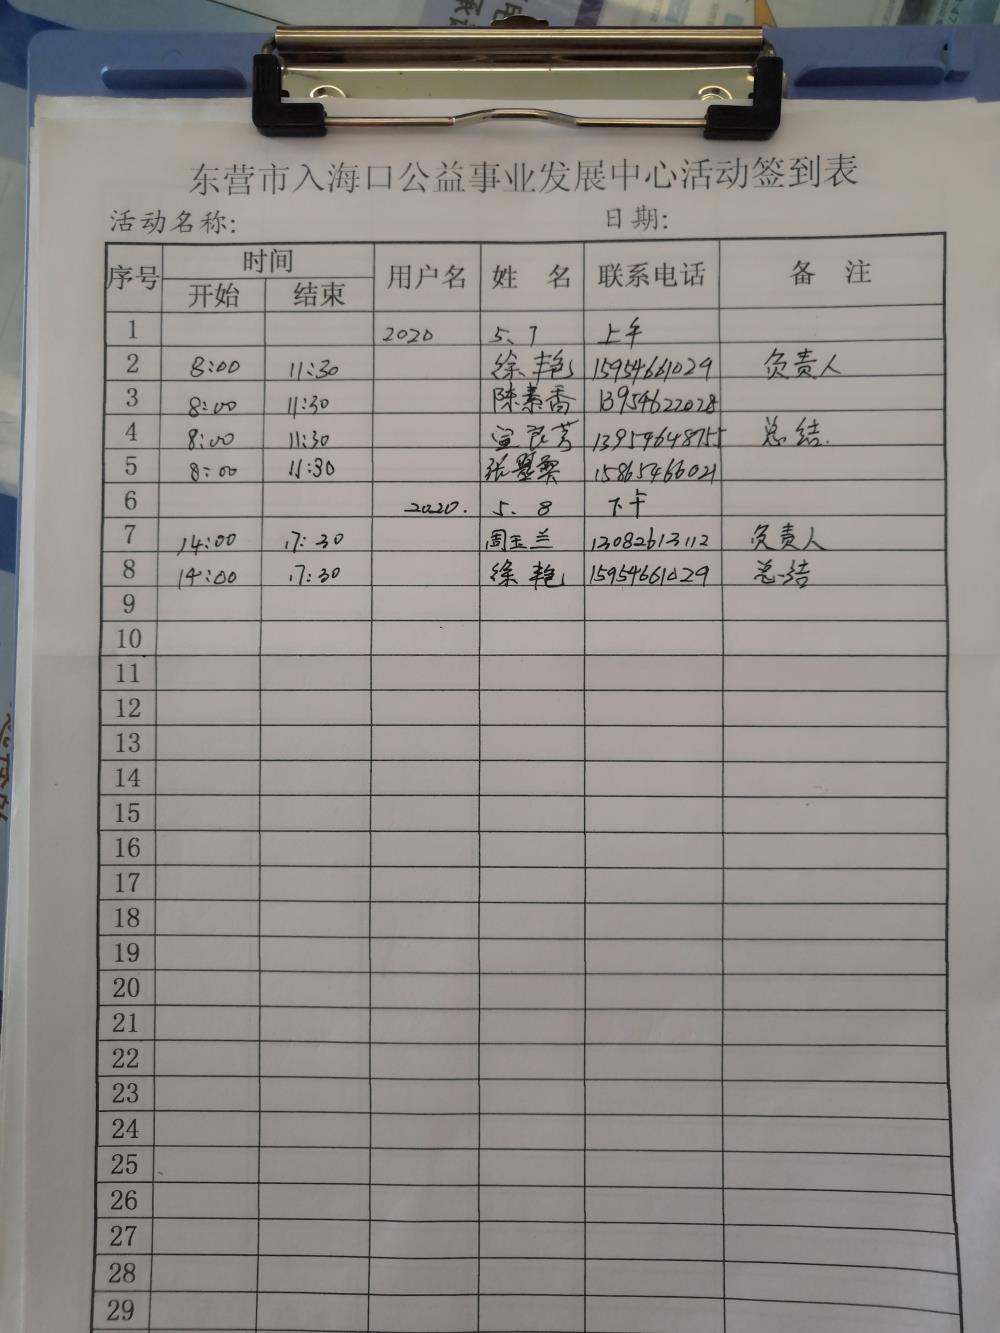 东营市入海口公益事业发展中心活动签到表
活动名称: 日期:
序号 时间 用户名 姓 名 联系电话 备 注
开始 结束
1 2020 5、7 上午
2 8:00 11:30 徐艳 15954661029 负责人
3 8:00 11:30 陈素香 13954622028
4 8:00 11:30 13959648755 总结.
5 8:00 11:30 15865466021
6 2020. 5、8 下午
7 14:00 17:30 周玉兰 13082613112 负责人
8 14:00 17:30 徐艳 15954661029 总结
9
10
11
12
13
14
15
16
17
18
19
20
21
22
23
24
25
26
27
28
29